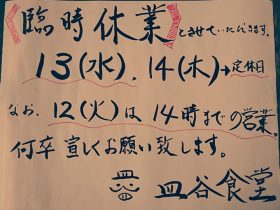 臨時休業とさせていただきます。
13(水)、14(木)→定休日
なお、12(火)は14時までの営業。
何卒宜しくお願い致します。
皿谷食堂